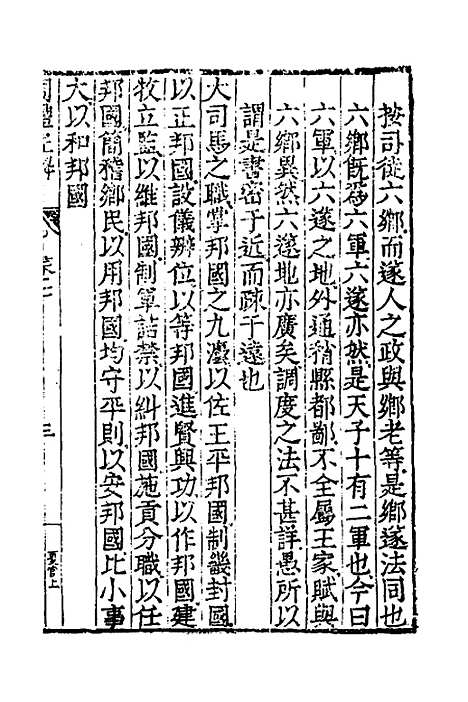 按司徒六鄉而遂人之政與鄉老等是鄉遂法同也
六鄉既爲六軍六遂亦然是天子十有二軍也今曰
六軍以六遂之地外通稍縣都鄙不全屬王家賦與
六鄉異然六遂地亦廣矣調度之法不甚詳愚所以
謂是書密于近而疎于遠也
大司馬之職掌邦國之九灋以佐王平邦國制畿封國
以正邦國設儀辨位以等邦國進賢興功以作邦國建
牧立監以維邦國制軍詰禁以糾邦國施貢分職以任
邦國簡稽鄉民以用邦國均守平則以安邦國比小事
大以和邦國
卷七
三
夏官上